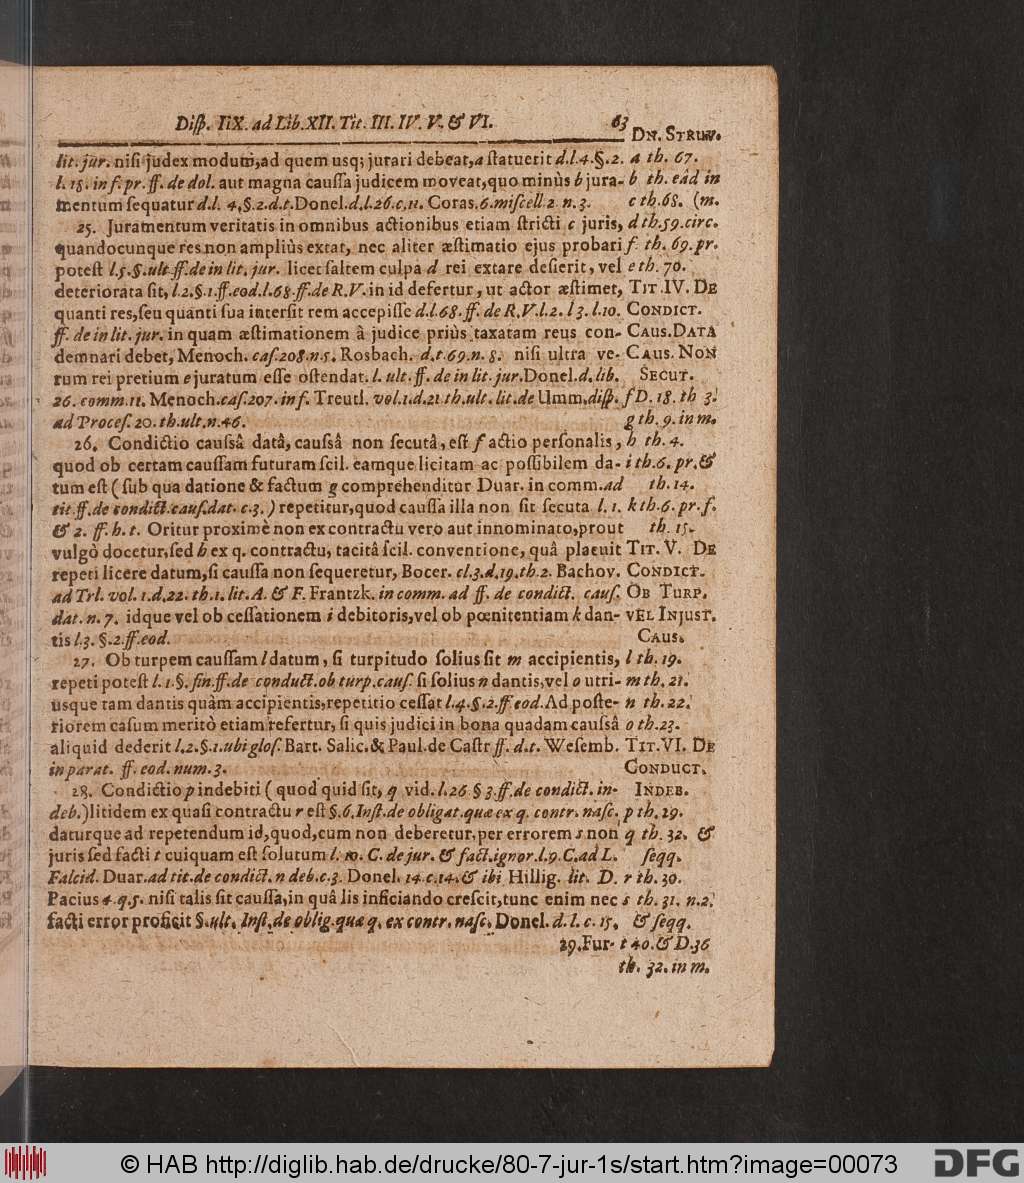 Diſp. IiX. ad Lib. XII. Tit. III. IV. V. & VI. 63
lit. jur. niſi judex modum, ad quem usq; jurari debeat, a ſtatuerit d.l.4.§.2.
l. 18. in f. pr. ff. de dol. aut magna cauſſa judicem moveat, quo minùs b jura-
mentum ſequatur d.l. 4,§.2.d.t. Donel. d.l.26.c.11. Coras. 6. miſcell. 2. n. 3.
25. Juramentum veritatis in omnibus actionibus etiam ſtricti c juris,
quandocunque res non ampliùs extat, nec aliter æſtimatio ejus probari
poteſt l.5.§.ult. ff. de in lit. jur. licet ſaltem culpa d rei extare deſierit, vel
deteriorata ſit, l.2.§.1. ff. eod. l.68. ff. de R.V. in id defertur, ut actor æſtimet,
quanti res, ſeu quanti ſua interſit rem accepiſſe d.l.68. ff. de R.V. l.2. l 3. l.10.
ff. de in lit. jur. in quam æſtimationem à judice priùs taxatam reus con-
demnari debet, Menoch. caſ. 208. n. 5. Rosbach. d.t. 69. n. 8. niſi ultra ve-
rum rei pretium e juratum eſſe oſtendat. l. ult. ff. de in lit. jur. Donel. d. lib.
26. comm. 11. Menoch. caſ. 207. in f. Treutl. vol. 1. d. 21. th. ult. lit. de Umm. diſp.
ad Proceſ. 20. th. ult. n. 46.
26. Condictio cauſsâ datâ, cauſsâ non ſecutâ, eſt f actio perſonalis,
quod ob certam cauſſam futuram ſcil. eamque licitam ac poſſibilem da-
tum eſt (ſub qua datione & factum g comprehenditur Duar. in comm. ad
tit. ff. de condict. cauſ. dat. c. 3.) repetitur, quod cauſſa illa non ſit ſecuta l. 1.
& 2. ff. h. t. Oritur proximè non ex contractu vero aut innominato, prout
vulgò docetur, ſed h ex q. contractu, tacitâ ſcil. conventione, quâ placuit
repeti licere datum, ſi cauſſa non ſequeretur, Bocer. cl. 3. d. 19. th. 2. Bachov.
ad Trl. vol. 1. d. 22. th. 1. lit. A. & F. Frantzk. in comm. ad ff. de condict. cauſ.
dat. n. 7. idque vel ob ceſſationem i debitoris, vel ob pœnitentiam k dan-
tis l.3. §.2. ff. eod.
27. Ob turpem cauſſam l datum, ſi turpitudo ſolius ſit m accipientis,
repeti poteſt l. 1. §. fin. ff. de conduct. ob turp. cauſ. ſi ſolius n dantis, vel o utri-
usque tam dantis quàm accipientis, repetitio ceſſat l.4.§.2. ff. eod. Ad poſte-
riorem caſum meritò etiam refertur, ſi quis judici in bona quadam cauſsâ
aliquid dederit l.2.§.1. ubi gloſ. Bart. Salic. & Paul. de Caſtr ff. d.t. Weſemb.
in parat. ff. eod. num. 3.
28. Condictio p indebiti (quod quid ſit, q vid. l.26 § 3. ff. de condict. in-
deb.) itidem ex quaſi contractu r eſt §. 6. Inſt. de obligat. quæ ex q. contr. naſc.
daturque ad repetendum id, quod, cum non deberetur, per errorem s non
juris ſed facti t cuiquam eſt ſolutum l. 10. C. de jur. & fact. ignor. l.9. C. ad L.
Falcid. Duar. ad tit. de condict. n deb. c. 3. Donel. 14. c. 14. & ibi Hillig. lit. D.
Pacius 4. q. 5. niſi talis ſit cauſſa, in quâ lis inficiando creſcit, tunc enim nec
facti error proficit §. ult. Inſt. de oblig. quæ q. ex contr. naſc. Donel. d. l. c. 15.
29. Fur-
DN. STRUV.
a th. 67.
b th. eâd in
c th. 68. (m.
d th. 59. circ.
f th. 69. pr.
e th. 70.
TIT. IV. DE
CONDICT.
CAUS. DATA
CAUS. NON
SECUT.
f D. 18. th 3.
g th. 9. in m.
h th. 4.
i th. 6. pr. &
th. 14.
k th. 6. pr. f.
th. 15.
TIT. V. DE
CONDICT.
OB TURP.
VEL INJUST.
CAUS.
l th. 19.
m th. 21.
n th. 22.
o th. 23.
TIT. VI. DE
CONDUCT.
INDEB.
p th. 29.
q th. 32. &
ſeqq.
r th. 30.
s th. 31. n. 2.
& ſeqq.
t 40. & D. 36
th. 32. in m.
© HAB http://diglib.hab.de/drucke/80-7-jur-1s/start.htm?image=00073
DFG